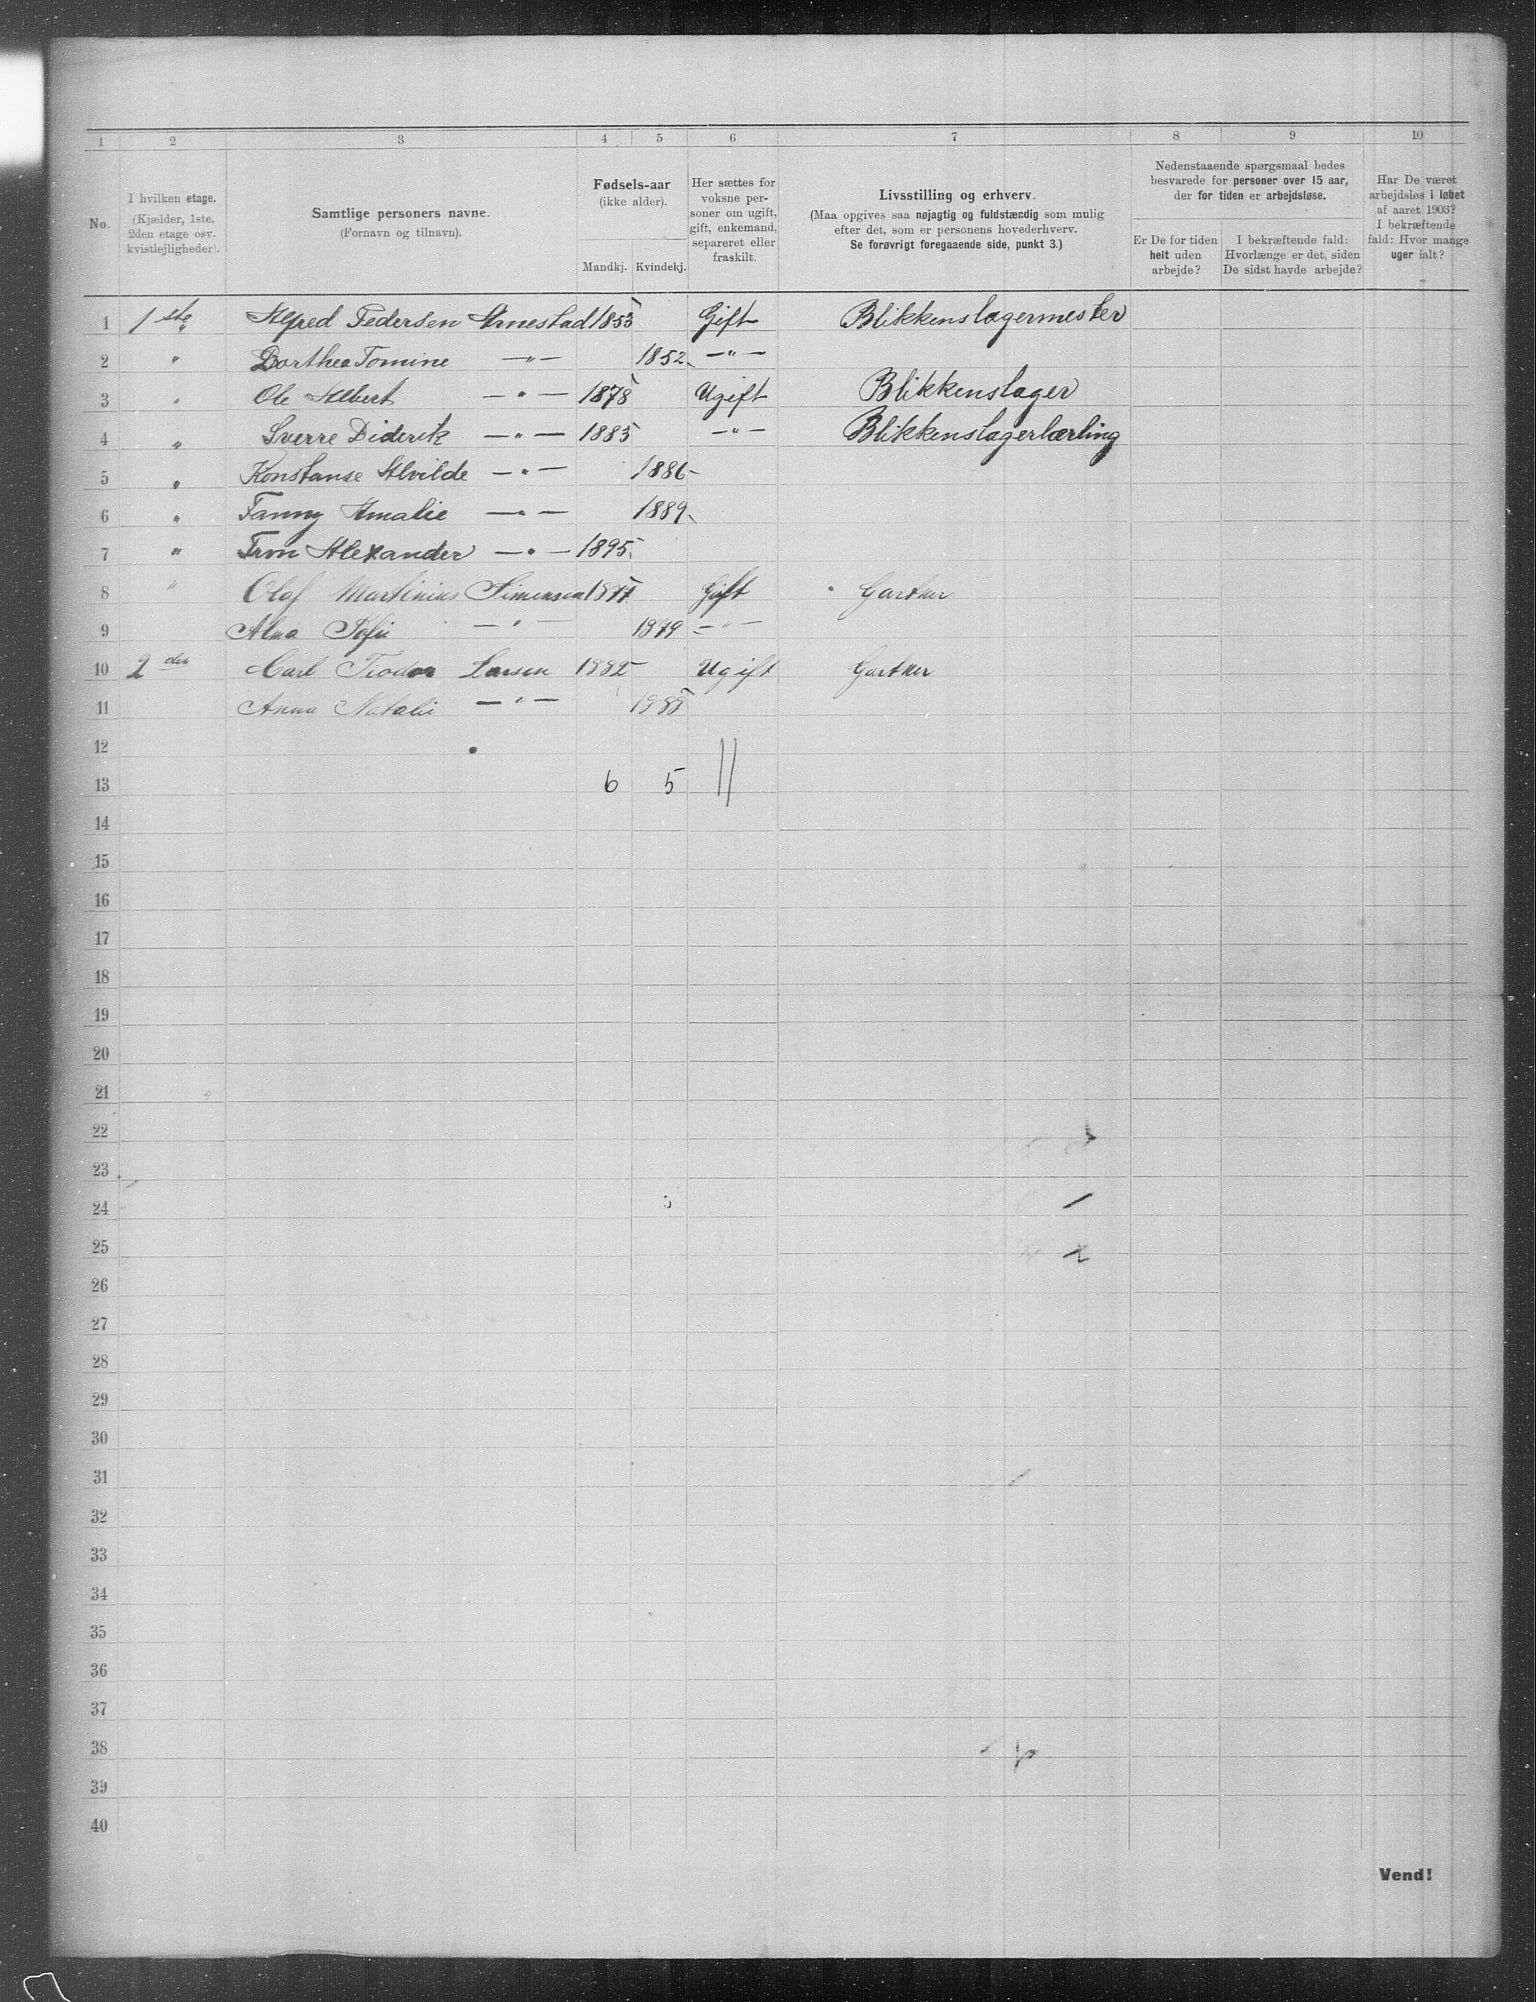 1 2 3 4 5 6 7 8 9 10
No.
I hvilken etage.
(Kjælder, 1ste,
2den etage osv.
kvistlejligheder).
Samtlige personers navne.
(Fornavn og tilnavn).
Fødsels-aar
(ikke alder).
Mandkj. Kvindekj.
Her sættes for
voksne per-
soner om ugift,
gift, enkemand,
separeret eller
fraskilt.
Livsstilling og erhverv.
(Maa opgives saa nøjagtig og fuldstændig som mulig
efter det, som er personens hovederhverv.
Se forøvrigt foregaaende side, punkt 3.)
Nedenstaaende spørgsmaal bedes
besvarede for personer over 15 aar,
der for tiden er arbejdsløse.
Er De for tiden
helt uden
arbejde?
I bekræftende fald:
Hvorlænge er det, siden
De sidst havde arbejde?
Har De været
arbejdsløs i løbet
af aaret 1903?
I bekræftende
fald: Hvor mange
uger ialt?
1 1ste Alfred Pedersen Arnestad 1853 Gift Blikkenslagermester
2 " Dorthea Tomine —"— 1852 —"—
3 " Ole Albert —"— 1878 Ugift Blikkenslager
4 " Sverre Diderik —"— 1885 —"— Blikkenslagerlærling
5 " Konstanse Alvilde —"— 1886
6 " Fanny Amalie —"— 1889
7 " Tron Alexander —"— 1895
8 " Olaf Martinius Simensen 1877 Gift Gartner
9 Alma Sofie —"— 1879 —"—
10 2den Carl Teodor Larsen 1882 Ugift Gartner
11 Anna Natalie —"— 1885
12
13 6 5 11
14
15
16
17
18
19
20
21
22
23
24
25
26
27
28
29
30
31
32
33
34
35
36
37
38
39
40
Vend!